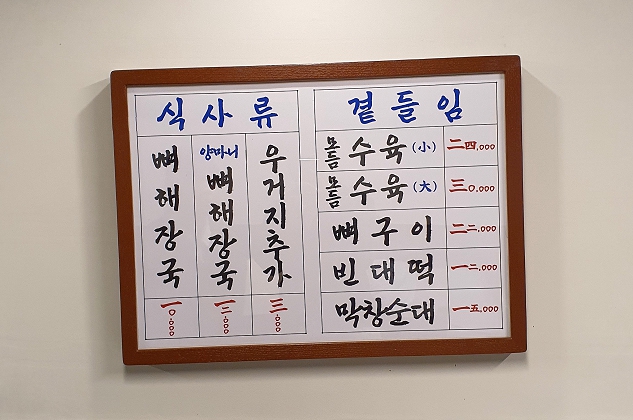 식사류
뼈해장국
一〇,000
양마니
뼈해장국
一三,000
우거지추가
三,000
곁들임
모듬 수육 (小) 二四,000
모듬 수육 (大) 三〇,000
뼈구이 二二,000
빈대떡 一二,000
막창순대 一五,000